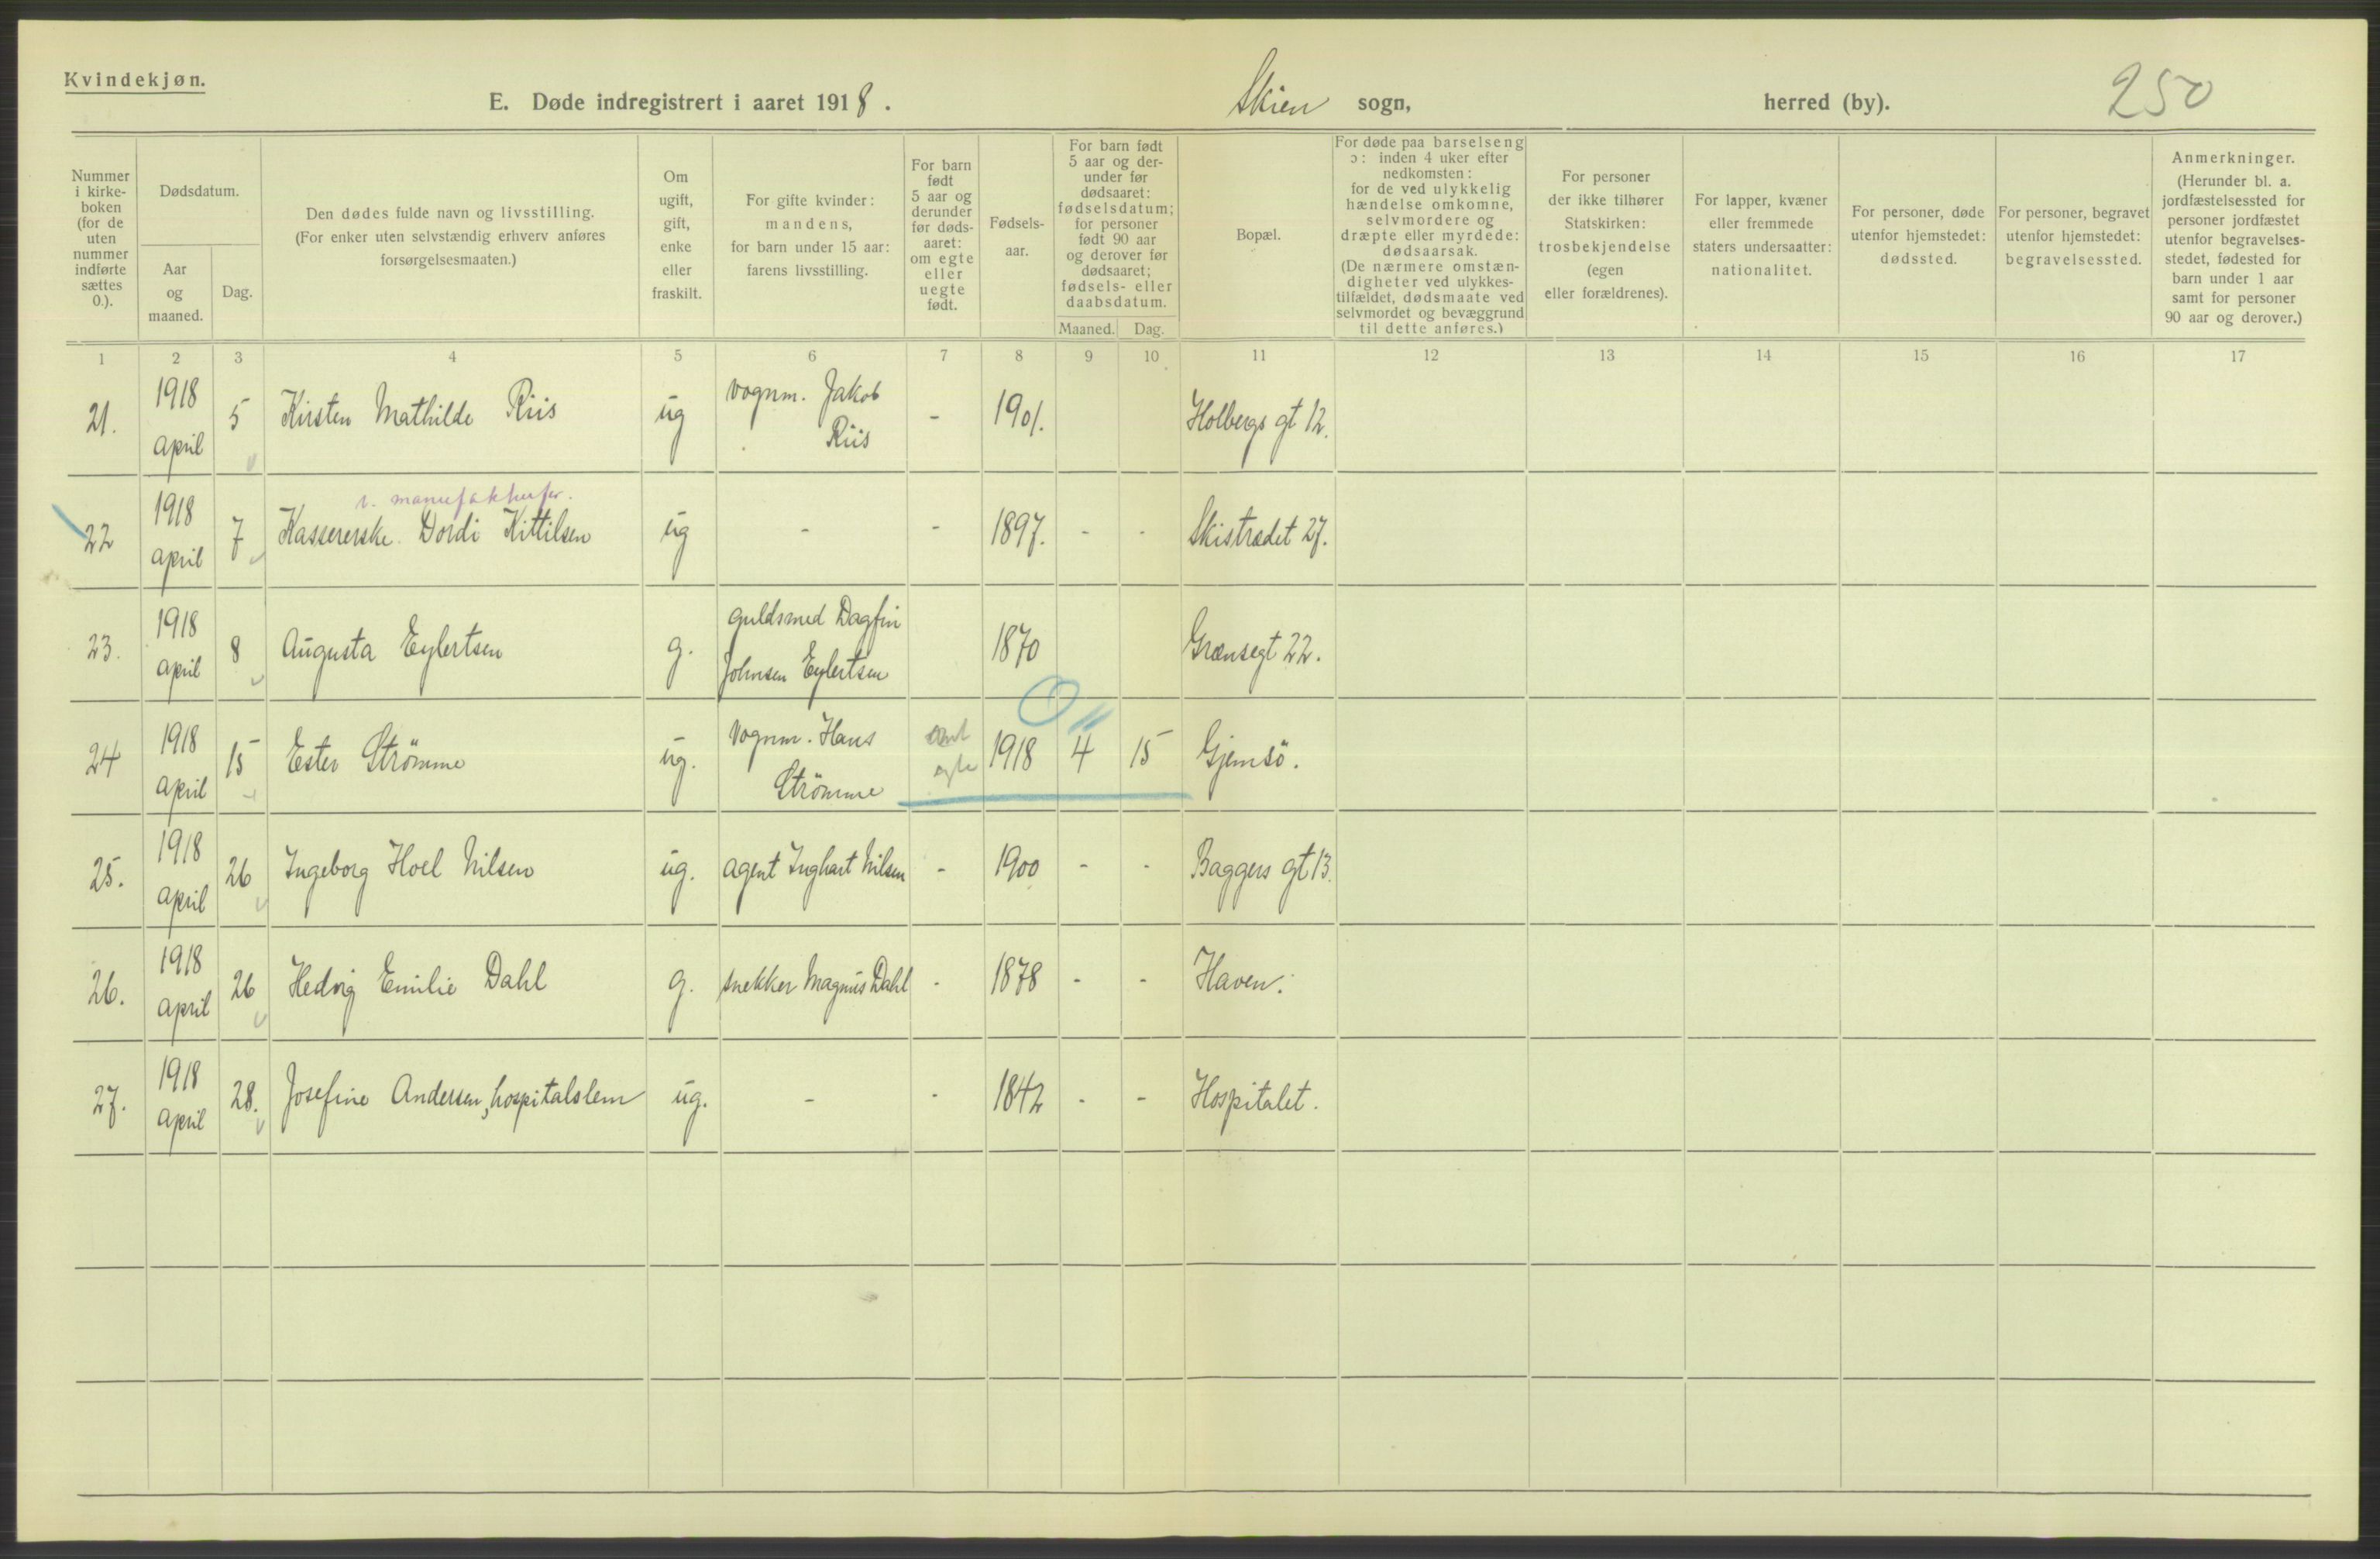 Kvindekjøn.
E. Døde indregistrert i aaret 1918. Skien sogn, herred (by). 250
Nummer i kirke-boken (for de uten nummer indførte sættes 0.).
Dødsdatum.
Aar og maaned.
Dag.
Den dødes fulde navn og livsstilling.
(For enker uten selvstændig erhverv anføres forsørgelsesmaaten.)
Om ugift, gift, enke eller fraskilt.
For gifte kvinder: mandens, for barn under 15 aar: farens livsstilling.
For barn født 5 aar og derunder før døds-aaret: om egte eller uegte født.
Fødsels-aar.
For barn født 5 aar og der-under før dødsaaret: fødselsdatum; for personer født 90 aar og derover før dødsaaret; fødsels- eller daabsdatum.
Maaned. Dag.
Bopæl.
For døde paa barselseng ɔ: inden 4 uker efter nedkomsten: for de ved ulykkelig hændelse omkomne, selvmordere og dræpte eller myrdede: dødsaarsak. (De nærmere omstæn-digheter ved ulykkes-tilfældet, dødsmaate ved selvmordet og bevæggrund til dette anføres.)
For personer der ikke tilhører Statskirken: trosbekjendelse (egen eller forældrenes).
For lapper, kvæner eller fremmede staters undersaatter: nationalitet.
For personer, døde utenfor hjemstedet: dødssted.
For personer, begravet utenfor hjemstedet: begravelsessted.
Anmerkninger. (Herunder bl. a. jordfæstelsessted for personer jordfæstet utenfor begravelses-stedet, fødested for barn under 1 aar samt for personer 90 aar og derover.)
1 2 3 4 5 6 7 8 9 10 11 12 13 14 15 16 17
21. 1918 april 5 Kirsten Mathilde Riis ug vognm. Jakob Riis - 1901. Holbergs gt 12.
i. manufakturfor.
22 1918 april 7 Kassererske Dordi Kittilsen ug - - 1897. - - Skistrædet 27.
23. 1918 april 8 Augusta Eylertsen g. guldsmed Dagfin Johnsen Eylertsen 1870 Grænsegt 22.
24 1918 april 15 Ester Strömme ug. Vognm. Hans Strömme egte 1918 4 15 Gjemsö.
25. 1918 april 26 Ingeborg Hoel Nilsen ug. agent Inghart Nilsen - 1900 - - Baggers gt 13.
26. 1918 april 26 Hedvig Emilie Dahl g. snekker Magnus Dahl - 1878 - - Haven.
27. 1918 april 28. Josefine Andersen, hospitalslem ug. - - 1842 - - Hospitalet.